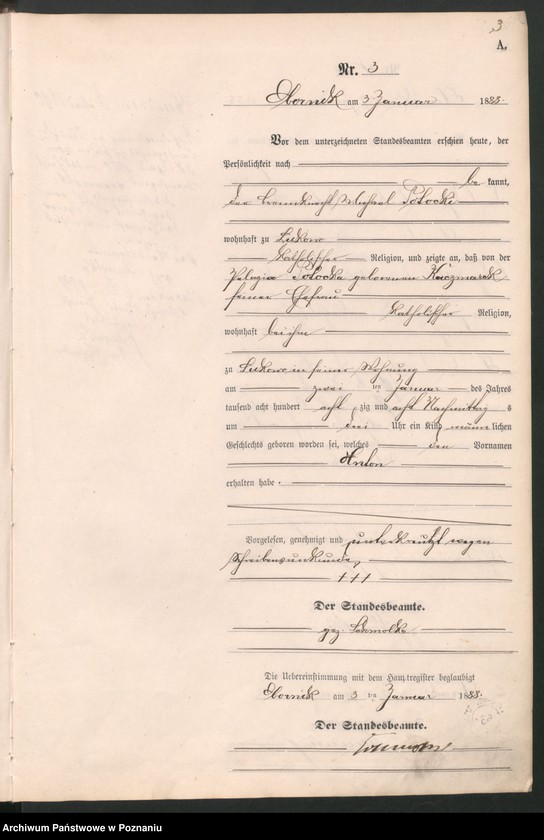 3
A.
Nr. 3
Obornik am 3 Januar 1888.
Vor dem unterzeichneten Standesbeamten erschien heute, der
Persönlichkeit nach
be kannt,
der Brennknecht Michael Potocki
wohnhaft zu Lukowo
katholischer Religion, und zeigte an, daß von der
Pelagia Potocka geborenen Kaczmarek
seiner Ehefrau
katholischer Religion,
wohnhaft bei ihm
zu Lukowo in seiner Wohnung
am zwei ten Januar des Jahres
tausend acht hundert acht zig und acht Nachmittag s
um drei Uhr ein Kind männ lichen
Geschlechts geboren worden sei, welches den Vornamen
Anton
erhalten habe.
Vorgelesen, genehmigt und unterkreuzt wegen
Schreibensunkunde,
+++
Der Standesbeamte.
gez.
Die Uebereinstimmung mit dem Hauptregister beglaubigt
Obornik am 3 ten Januar 1888.
Der Standesbeamte.
Archiwum Państwowe w Poznaniu